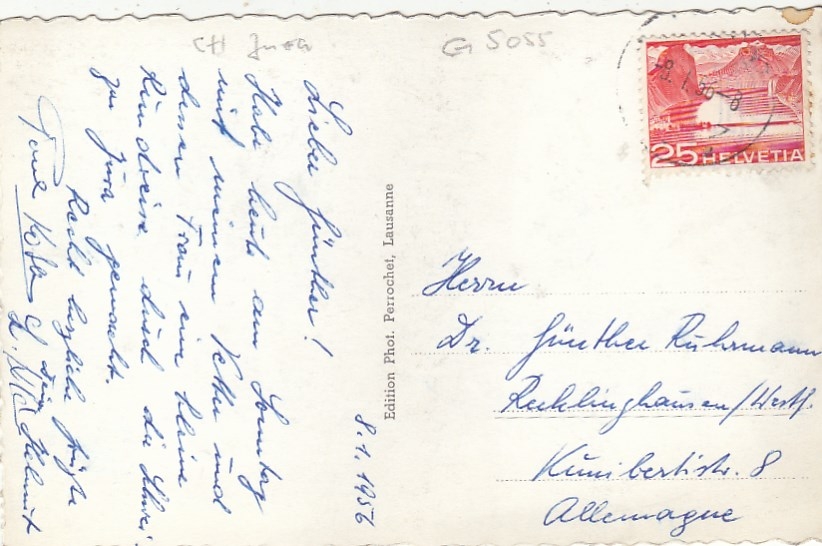 CH Jura
G 5055
-8.1.56-8
25 HELVETIA
8.1.1956
Lieber Günther!
Habe heute am Sonntag
mit meinem Vetter und
dessen Frau eine kleine
Rundreise durch die Schwei-
zer Jura gemacht.
Recht herzliche Grüße
dein Helmut
Edition Phot. Perrochet, Lausanne
Herrn
Dr. Günther Ruhrmann
Recklinghausen/Westf.
Kunibertistr. 8
Allemagne